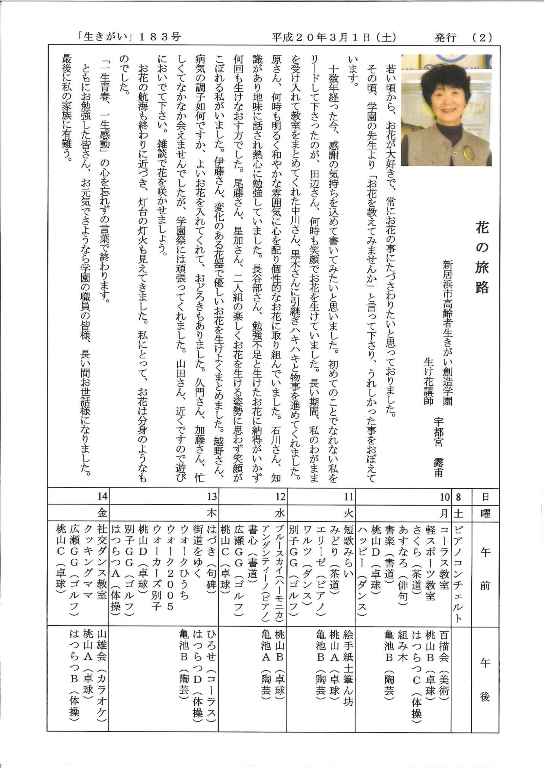 「生きがい」183号
平成20年3月1日(土)
発行 (2)
花の旅路
新居浜市高齢者生きがい創造学園
生け花講師 宇都宮 露甫
若い頃から、お花が大好きで、常にお花の事にたづさわりたいと思っておりました。
その頃、学園の先生より「お花を教えてみませんか」と言って下さり、うれしかった事をおぼえて
います。
十数年経った今、感謝の気持ちを込めて書いてみたいと思いました。初めてのことでなれない私を
リードして下さったのが、田辺さん、何時も笑顔でお花を生けていました。長い期間、私のわがまま
を受け入れて教室をまとめてくれた中川さん、黒木さんに引継ぎハキハキと物事を進めてくれました。
原さん、何時も明るく和やかな雰囲気に心を配り個性的なお花に取り組んでいました。石川さん、知
識があり地味に話され熱心に勉強していました。長谷部さん、勉強不足と生けたお花に納得がいかず
何回も生けなおす方でした。尾藤さん、星加さん、二人組の楽しくお花を生ける姿勢に思わず笑顔が
こぼれる私がいました。伊藤さん、変化のある花型で優しいお花を生けよくまとめました。越野さん、
病気の調子如何ですか、よいお花を入れてくれて、おどろきもありました。久門さん、加藤さん、忙
しくてなかなか会えませんでしたが、学園祭には頑張ってくれました。山田さん、近くですので遊び
においで下さい。雑談で花を咲かせましょう。
お花の航海も終わりに近づき、灯台の灯火も見えてきました。私にとって、お花は分身のようなも
のでした。
「一生青春、一生感動」の心を忘れずの言葉で終わります。
ともにお勉強した皆さん、お元気でさようなら学園の職員の皆様、長い間お世話様になりました。
最後に私の家族に有難う。
日 曜 午前 午後
8 土
ピアノコンチェルト
10 月
コーラス教室
軽スポーツ教室
さくら(茶道)
あすなろ(俳句)
書楽(書道)
桃山D(卓球)
ハッピー(ダンス)
百描会(美術)
桃山B(卓球)
はつらつC(体操)
組み木
亀池B(陶芸)
11 火
短歌みらい
みどり(茶道)
エリーゼ(ピアノ)
ワルツ(ダンス)
別子GG(ゴルフ)
絵手紙土筆ん坊
桃山A(卓球)
亀池B(陶芸)
12 水
ブルースカイ(ハーモニカ)
アンダンティーノ(ピアノ)
書心(書道)
広瀬GG(ゴルフ)
桃山C(卓球)
桃山B(卓球)
亀池A(陶芸)
13 木
はづき(句碑)
街道をゆく
ウォークひうち
ウォーク2005
ウォーカーズ別子
桃山D(卓球)
別子GG(ゴルフ)
はつらつA(体操)
ひろせ(コーラス)
はつらつD(体操)
亀池B(陶芸)
14 金
社交ダンス教室
クッキングママ
広瀬GG(ゴルフ)
桃山C(卓球)
山雄会(カラオケ)
桃山A(卓球)
はつらつB(体操)